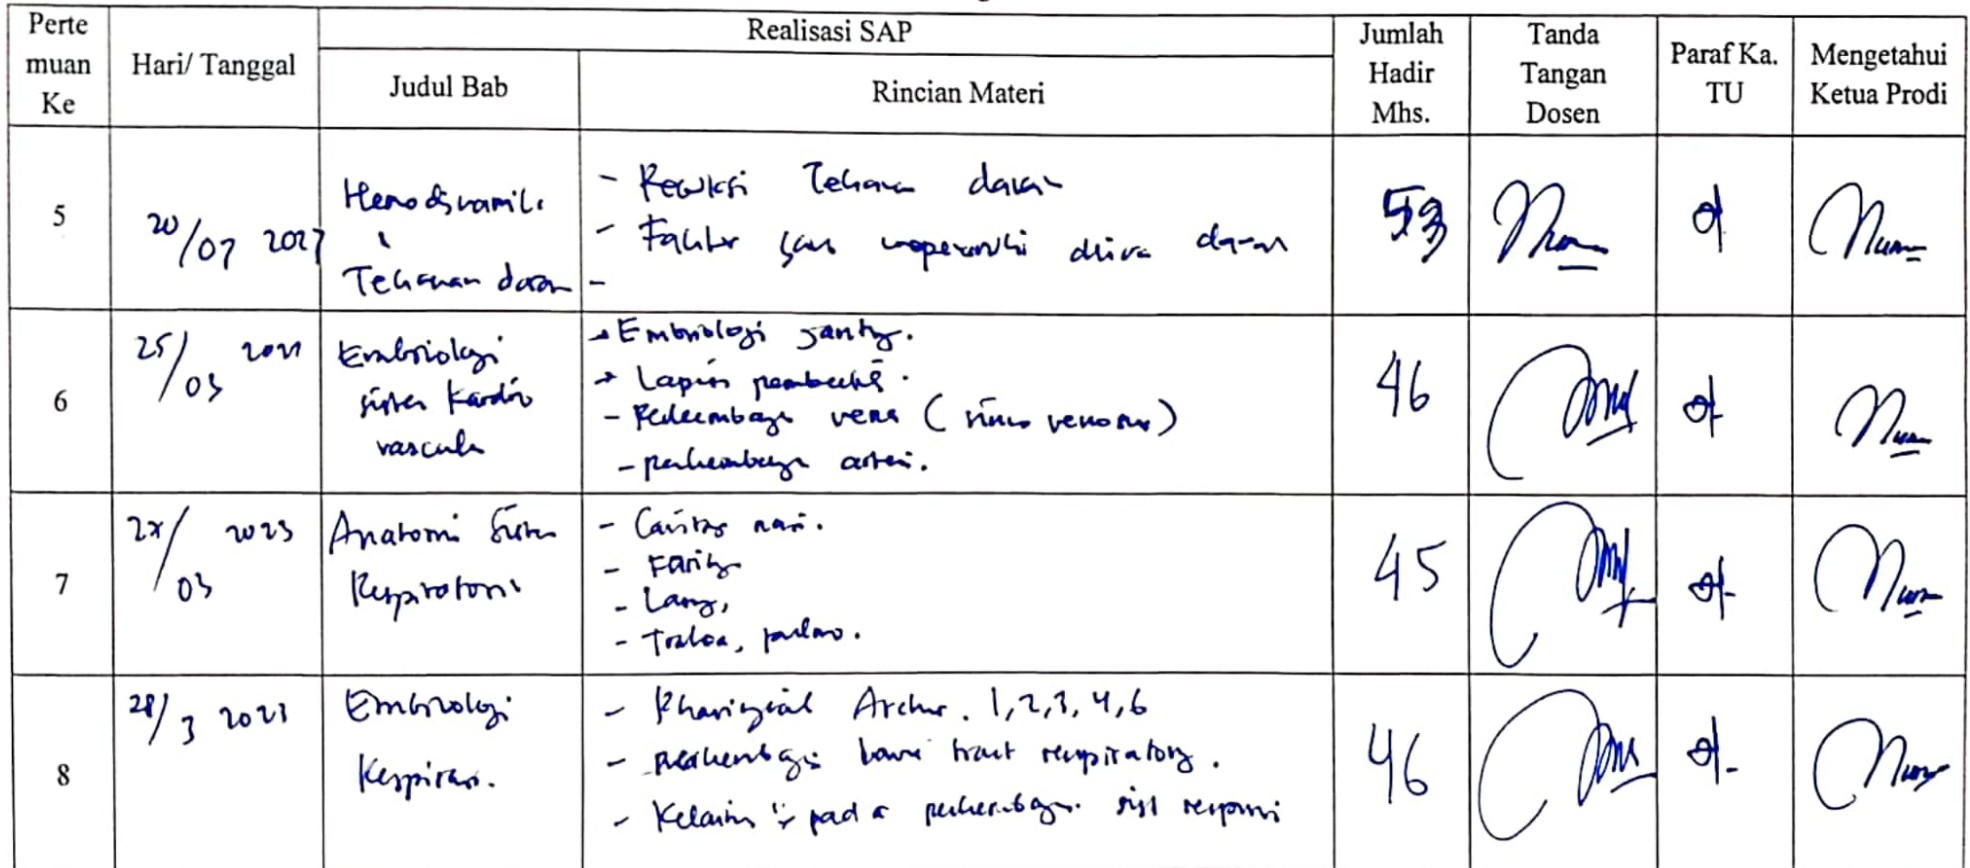 Perte muan Ke
Hari/ Tanggal
Realisasi SAP
Judul Bab
Rincian Materi
Jumlah Hadir Mhs.
Tanda Tangan Dosen
Paraf Ka. TU
Mengetahui Ketua Prodi
5
20/03 2023
Hemodinamik
Tekanan darah
- darah
- Faktor yang darah
-
53
6
25/03
Embriologi
sistem Kardio
vascular
Embriologi Jantung.
Lapisan pembentuk.
- Perkembangan vena (sinus venosus)
- perkembangan arteri.
46
7
03 2023
Anatomi Sistem
Respiratori
- Cavitas nasi.
- Faring
- Laring,
- Trakea, pulmo.
45
8
28/3 2023
Embriologi
Respirasi.
- Pharingial Archus. 1,2,3,4,6
- tract respiratory.
- Kelainan pada perkembangan
46